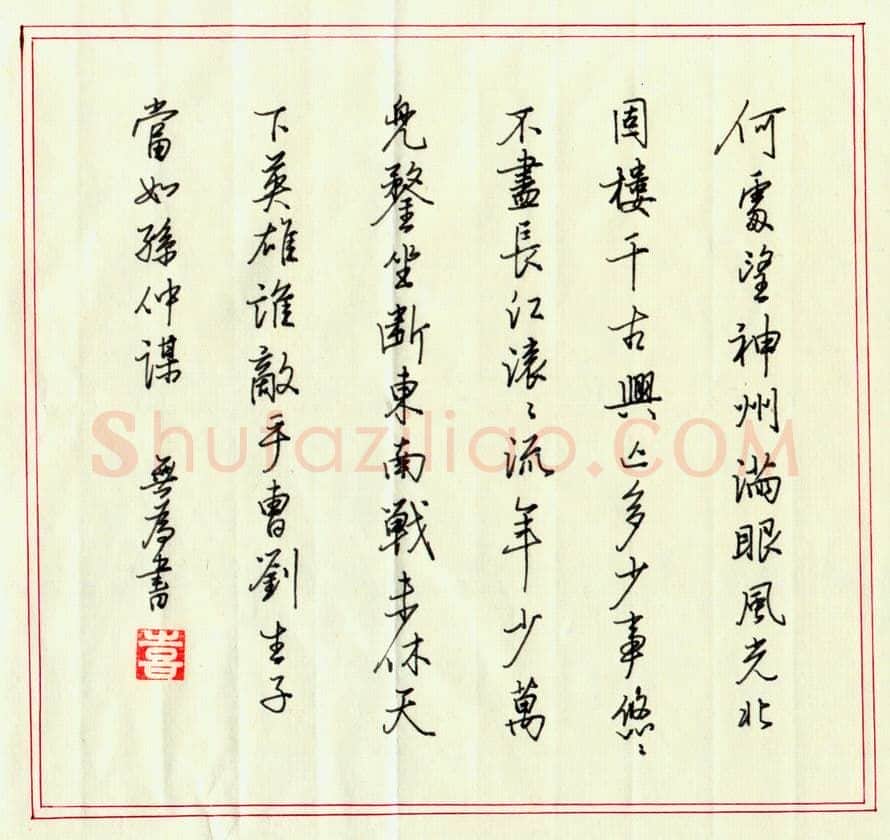 何處望神州滿眼風光北
固樓千古興亡多少事悠〻
不盡長江滚〻流年少萬
兜鍪坐斷東南戦未休天
下英雄誰敵手曹劉生子
當如孫仲謀 無為書
Shufaziliao.COM